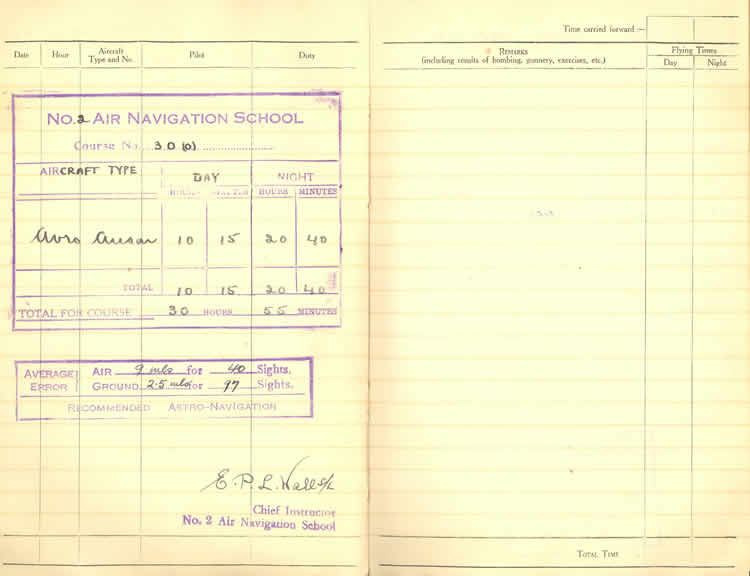 Date Hour Aircraft Type and No. Pilot Duty
No. 2 AIR NAVIGATION SCHOOL
Course No. 30 (O)
AIRCRAFT TYPE DAY NIGHT
HOURS MINUTES HOURS MINUTES
Avro Anson 10 15 20 40
TOTAL 10 15 20 40
TOTAL FOR COURSE 30 HOURS 55 MINUTES
AVERAGE ERROR
AIR 9 mls for 40 Sights.
GROUND 2.5 mls for 97 Sights.
RECOMMENDED ASTRO-NAVIGATION
E. P. L. Wall S/L
Chief Instructor
No. 2 Air Navigation School
Time carried forward —
REMARKS
(including results of bombing, gunnery, exercises, etc.)
Flying Times
Day Night
TOTAL TIME